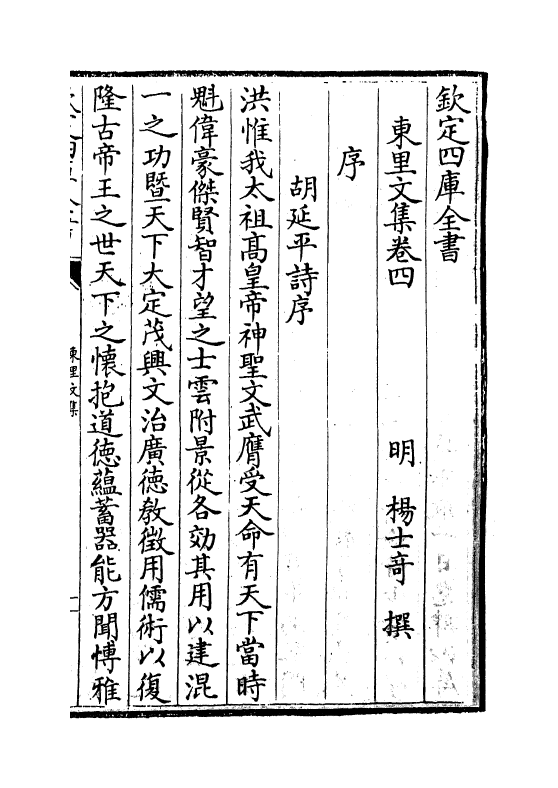 欽定四庫全書
東里文集卷四
明 楊士竒 撰
序
胡延平詩序
洪惟我太祖髙皇帝神聖文武膺受天命有天下當時
魁偉豪傑賢智才望之士雲附景從各効其用以建混
一之功暨天下大定茂興文治廣徳教徴用儒術以復
隆古帝王之世天下之懐抱道徳藴蓄器能方聞博雅
東里文集